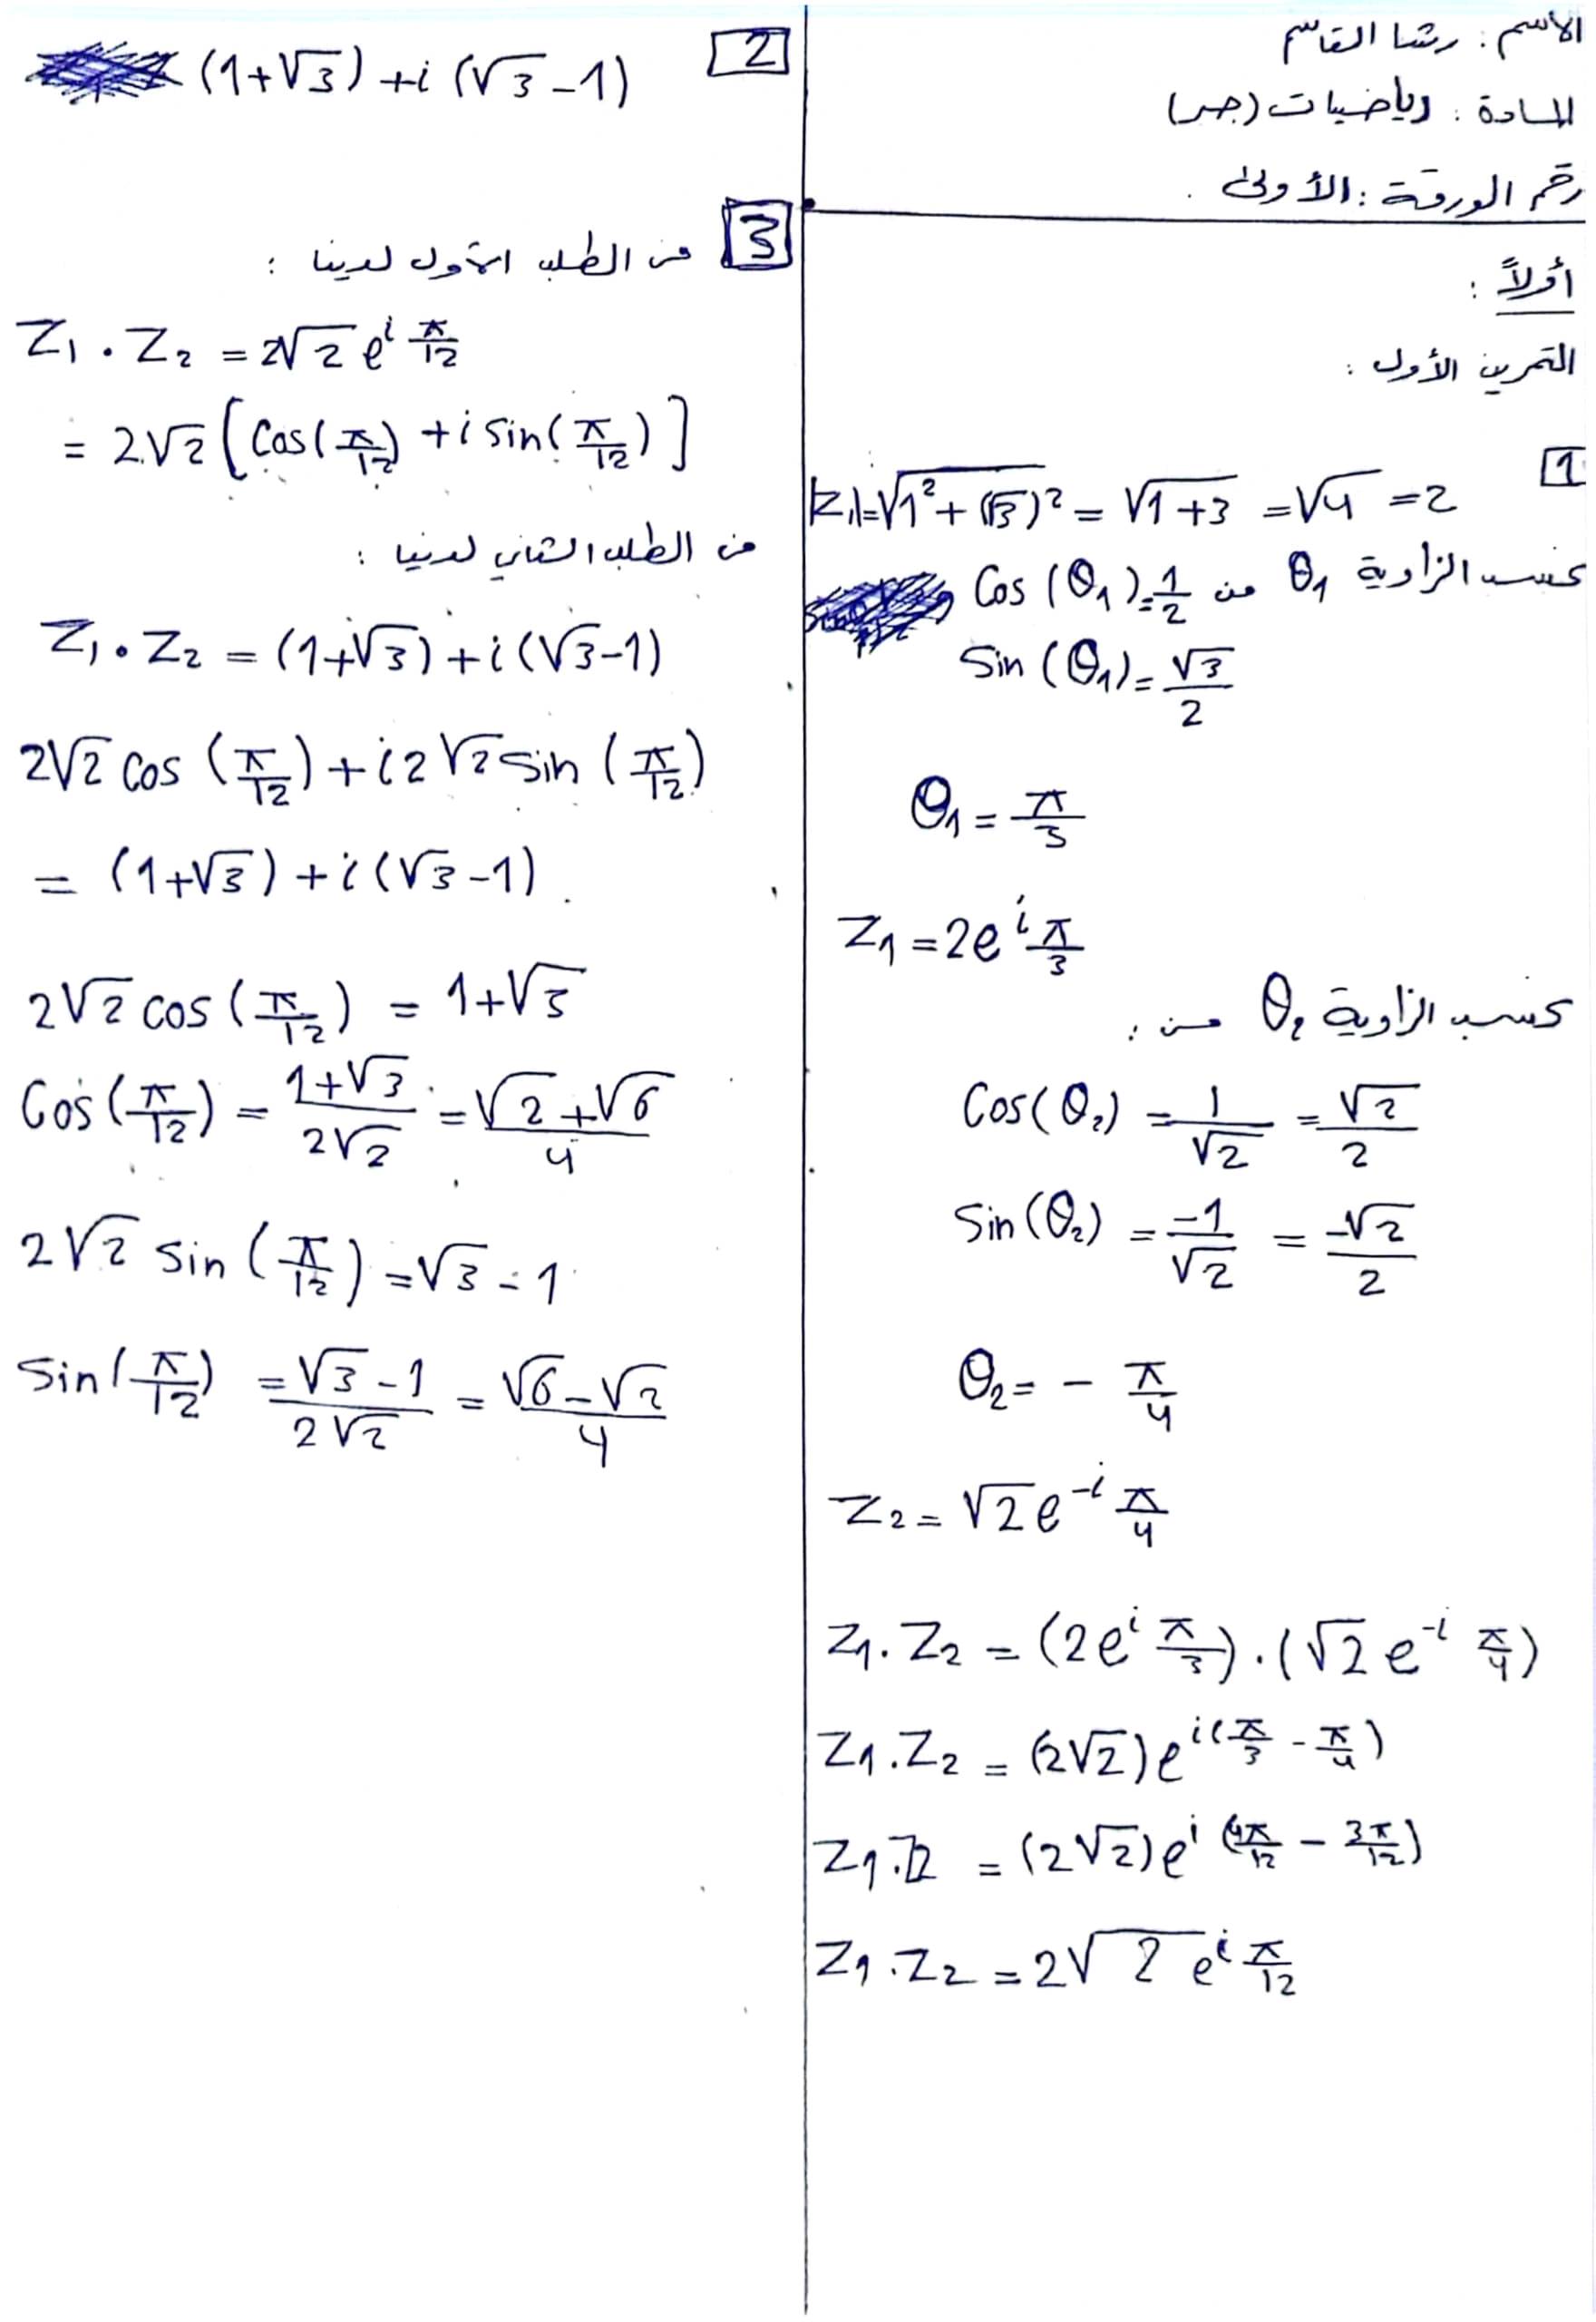 الاسم : رشا القاسم
المادة : رياضيات (جبر)
رقم الورقة : الأولى .
أولاً :
التمرين الأول :
1
|Z₁|=√1²+(√3)² = √1+3 = √4 = 2
نحسب الزاوية θ₁ من Cos (θ₁)=1/2
Sin (θ₁)= √3/2
θ₁ = π/3
Z₁ = 2e^i π/3
نحسب الزاوية θ₂ من :
Cos(θ₂) = 1/√2 = √2/2
Sin(θ₂) = -1/√2 = -√2/2
θ₂ = - π/4
Z₂ = √2 e^-i π/4
Z₁ . Z₂ = (2e^i π/3) . (√2 e^-i π/4)
Z₁ . Z₂ = (2√2) e^i(π/3 - π/4)
Z₁ . Z₂ = (2√2) e^i (4π/12 - 3π/12)
Z₁ . Z₂ = 2√2 e^i π/12
2
(1+√3) + i (√3 - 1)
3
من الطلب الأول لدينا :
Z₁ . Z₂ = 2√2 e^i π/12
= 2√2 [Cos(π/12) + i Sin(π/12)]
من الطلب الثاني لدينا :
Z₁ . Z₂ = (1+√3) + i (√3-1)
2√2 cos (π/12) + i 2√2 sin (π/12)
= (1+√3) + i (√3-1) .
2√2 cos (π/12) = 1+√3
Cos (π/12) = 1+√3/2√2 = √2+√6/4
2√2 sin (π/12) = √3 - 1
Sin (π/12) = √3-1/2√2 = √6-√2/4